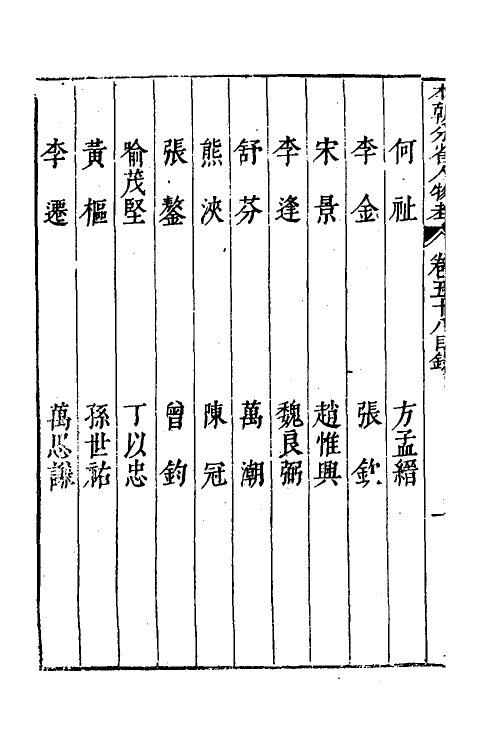 本朝分省人物考 卷五十八目錄 一
何祉 方孟縉
李金 張欽
宋景 趙惟興
李逢 魏良弼
舒芬 萬潮
熊浹 陳冠
張鏊 曾鈞
喻茂堅 丁以忠
黃樞 孫世祐
李遷 萬思謙